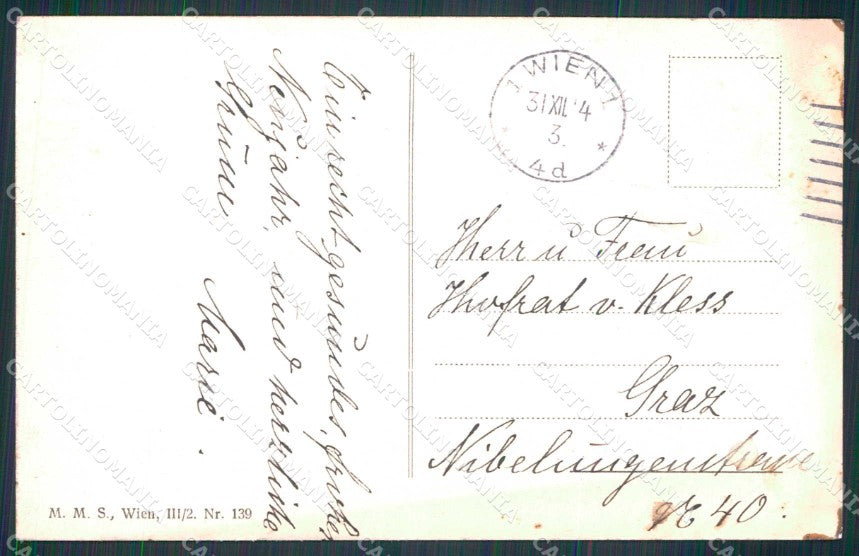 Ein recht gesundes, frohes
Neujahr und herzliche
Grüsse
Marie.
1 WIEN 1
31 XII. 4
3.
* 4d *
Herr u Frau
Hofrat v. Kless
Graz
Nibelungenstrasse
№ 40.
M. M. S., Wien, III/2. Nr. 139
CARTOLINOMANIA